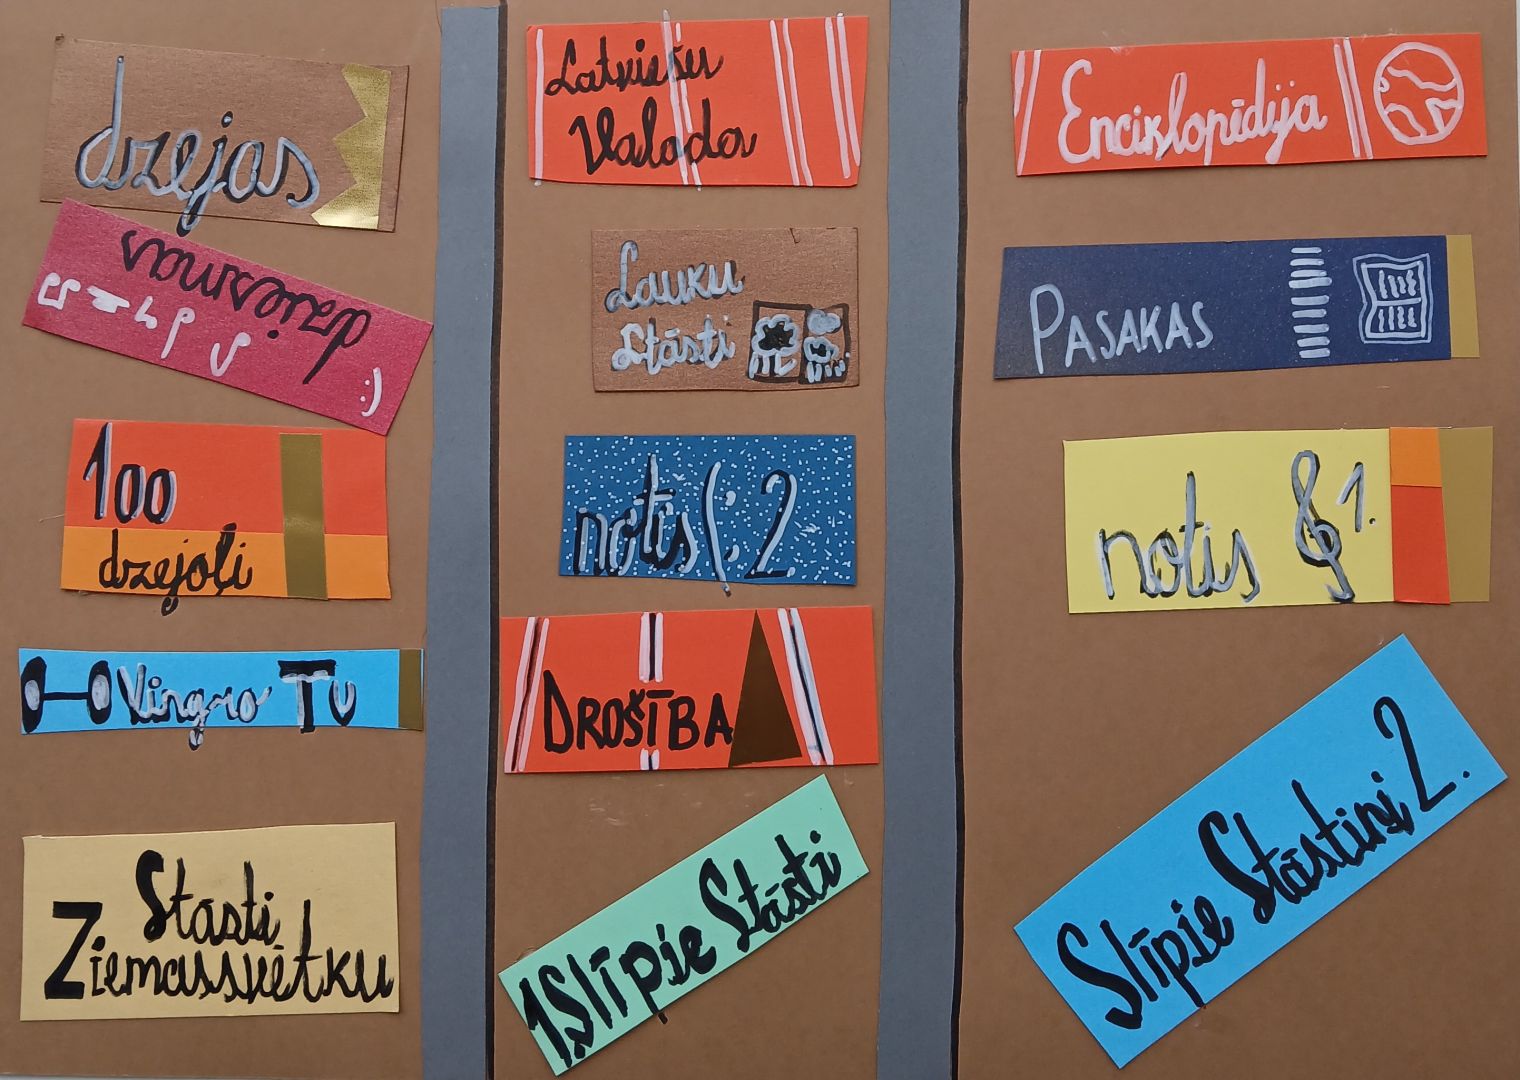 dzejas
dziesmas
:)
100
dzejoļi
Vingro TV
Stāsti
Ziemassvētku
Latviešu
Valoda
Lauku
Stāsti
notis 2
DROŠĪBA
1 Slīpie Stāsti
Enciklopīdija
PASAKAS
notis 1.
Slīpie Stāstiņi 2.